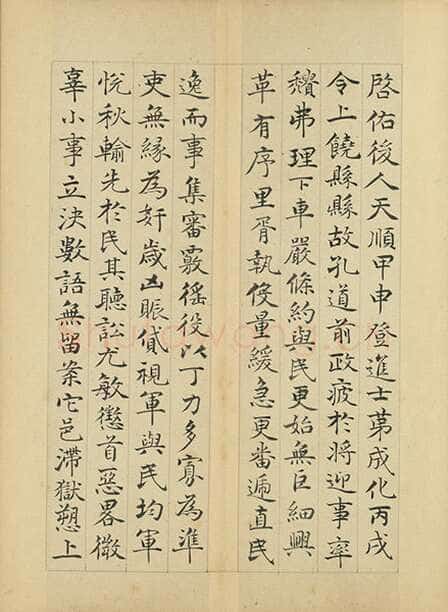 啓佑後人天順甲申登進士苐成化丙戌
令上饒縣縣故孔道前政疲於將迎事率
穳弗理下車嚴條約與民更始無巨細興
革有序里胥執役量緩急更番遞直民
逸而事集審覈徭役以丁力多寡為準
吏無緣為奸歲凶賑貸視軍與民均軍
恱秋輸先於民其聽訟尤敏懲首惡畧微
辜小事立決數語無留案它邑滯獄愬上